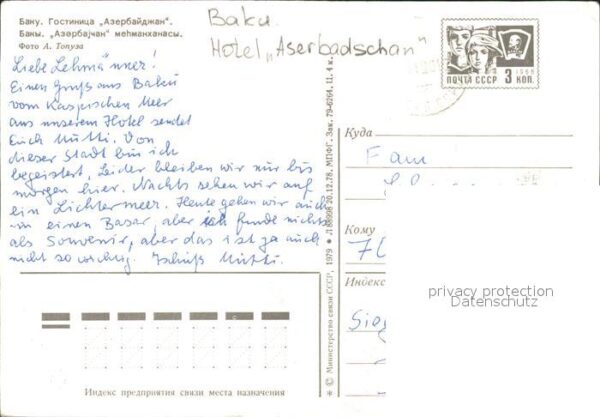 Баку. Гостиница „Азербайджан".
Бакы. „Азәрбајҹан" меһманханасы.
Фото А. Топуза
Baku.
Hotel „Aserbadschan"
Liebe Lehmänner!
Einen Gruß aus Baku
vom Kaspischen Meer
aus unserem Hotel sendet
Euch Mutti. Von
dieser Stadt bin ich
begeistert, leider bleiben wir nur bis
morgen hier. Nachts sehen wir auf
ein Lichtermeer. Heute gehen wir auch
in einen Basar, aber ich finde nichts
als Souvenir, aber das ist ja auch
nicht so wichtig. Tschüß Mutti.
Индекс предприятия связи места назначения
* © Министерство связи СССР, 1979 * Л 88998 20.12.78. МПФГ. Зак. 79-6264. Ц. 4 к.
1966
ПОЧТА СССР 3 КОП.
Куда
Fam
Кому
Индекс
privacy protection
Datenschutz